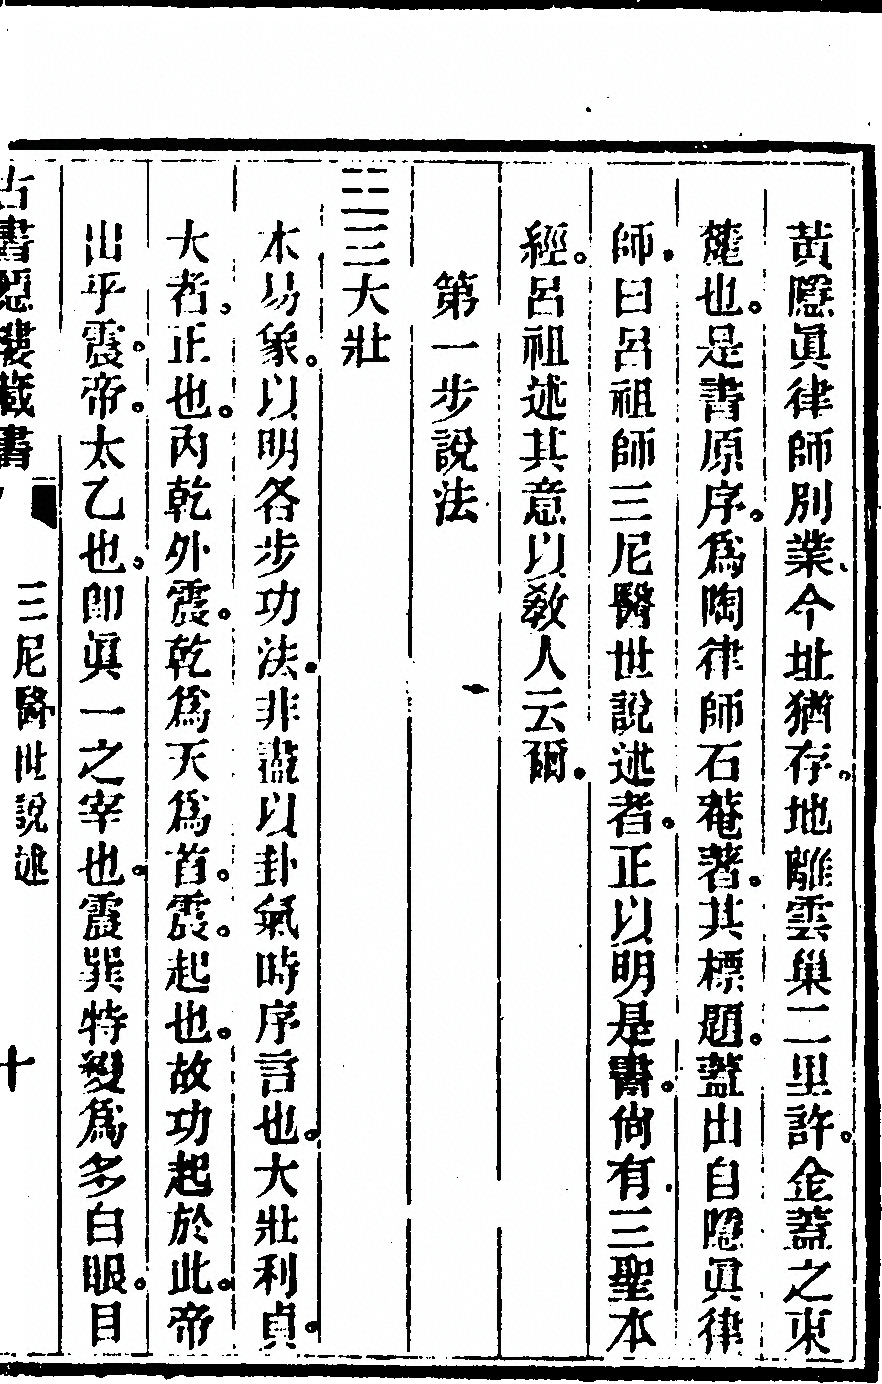 黃隱眞律師別業、今址猶存。地離雲巢二里許。金蓋之東
麓也。是書原序。爲陶律師石菴著。其標題。蓋出自隱眞律
師。師曰呂祖師三尼醫世說述者。正以明是書。尙有三聖本
經。呂祖述其意以敎人云爾。
第一步說法
三三大壯
本易象。以明各步功法。非盡以卦氣時序言也。大壯利貞。
大者、正也。內乾外震。乾爲天爲首。震。起也。故功起於此。帝
出乎震。帝。太乙也。卽眞一之宰也。震巽特變爲多白眼。目
古書隱樓藏書
三尼醫世說述
十